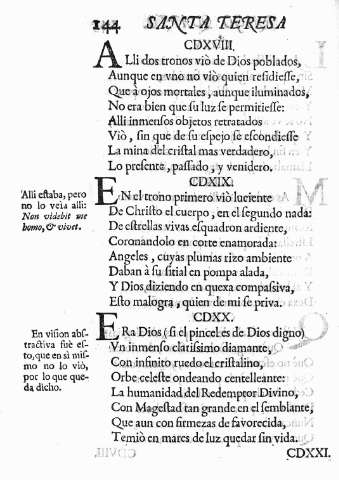 144 SANTA TERESA
CDXVIII.
ALli dos tronos viò de Dios poblados,
Aunque en vno no viò quien residiesse,
Que à ojos mortales, aunque iluminados,
No era bien que su luz se permitiesse:
Alli inmensos objetos retratados
Viò, sin que de su espejo se escondiesse
La mina del cristal mas verdadero,
Lo presente, passado, y venidero.
CDXIX.
Alli estaba, pero
no lo veia alli:
Non videbit me
homo, & vivet.
EN el trono primero viò luciente
De Christo el cuerpo, en el segundo nada:
De estrellas vivas esquadron ardiente,
Coronandolo en corte enamorada:
Angeles, cuyas plumas rizo ambiente
Daban à su sitial en pompa alada,
Y Dios diziendo en quexa compassiva,
Esto malogra, quien de mi se priva.
CDXX.
En vision abs-
tractiva fuè es-
to, que en si mis-
mo no lo viò,
por lo que que-
da dicho.
ERa Dios (si el pincel es de Dios digno)
Vn inmenso clarissimo diamante,
Con infinito ruedo el cristalino,
Orbe celeste ondeando centelleante:
La humanidad del Redemptor Divino,
Con Magestad tan grande en el semblante,
Que aun con firmezas de favorecida,
Temiò en mares de luz quedar sin vida.
CDXXI.